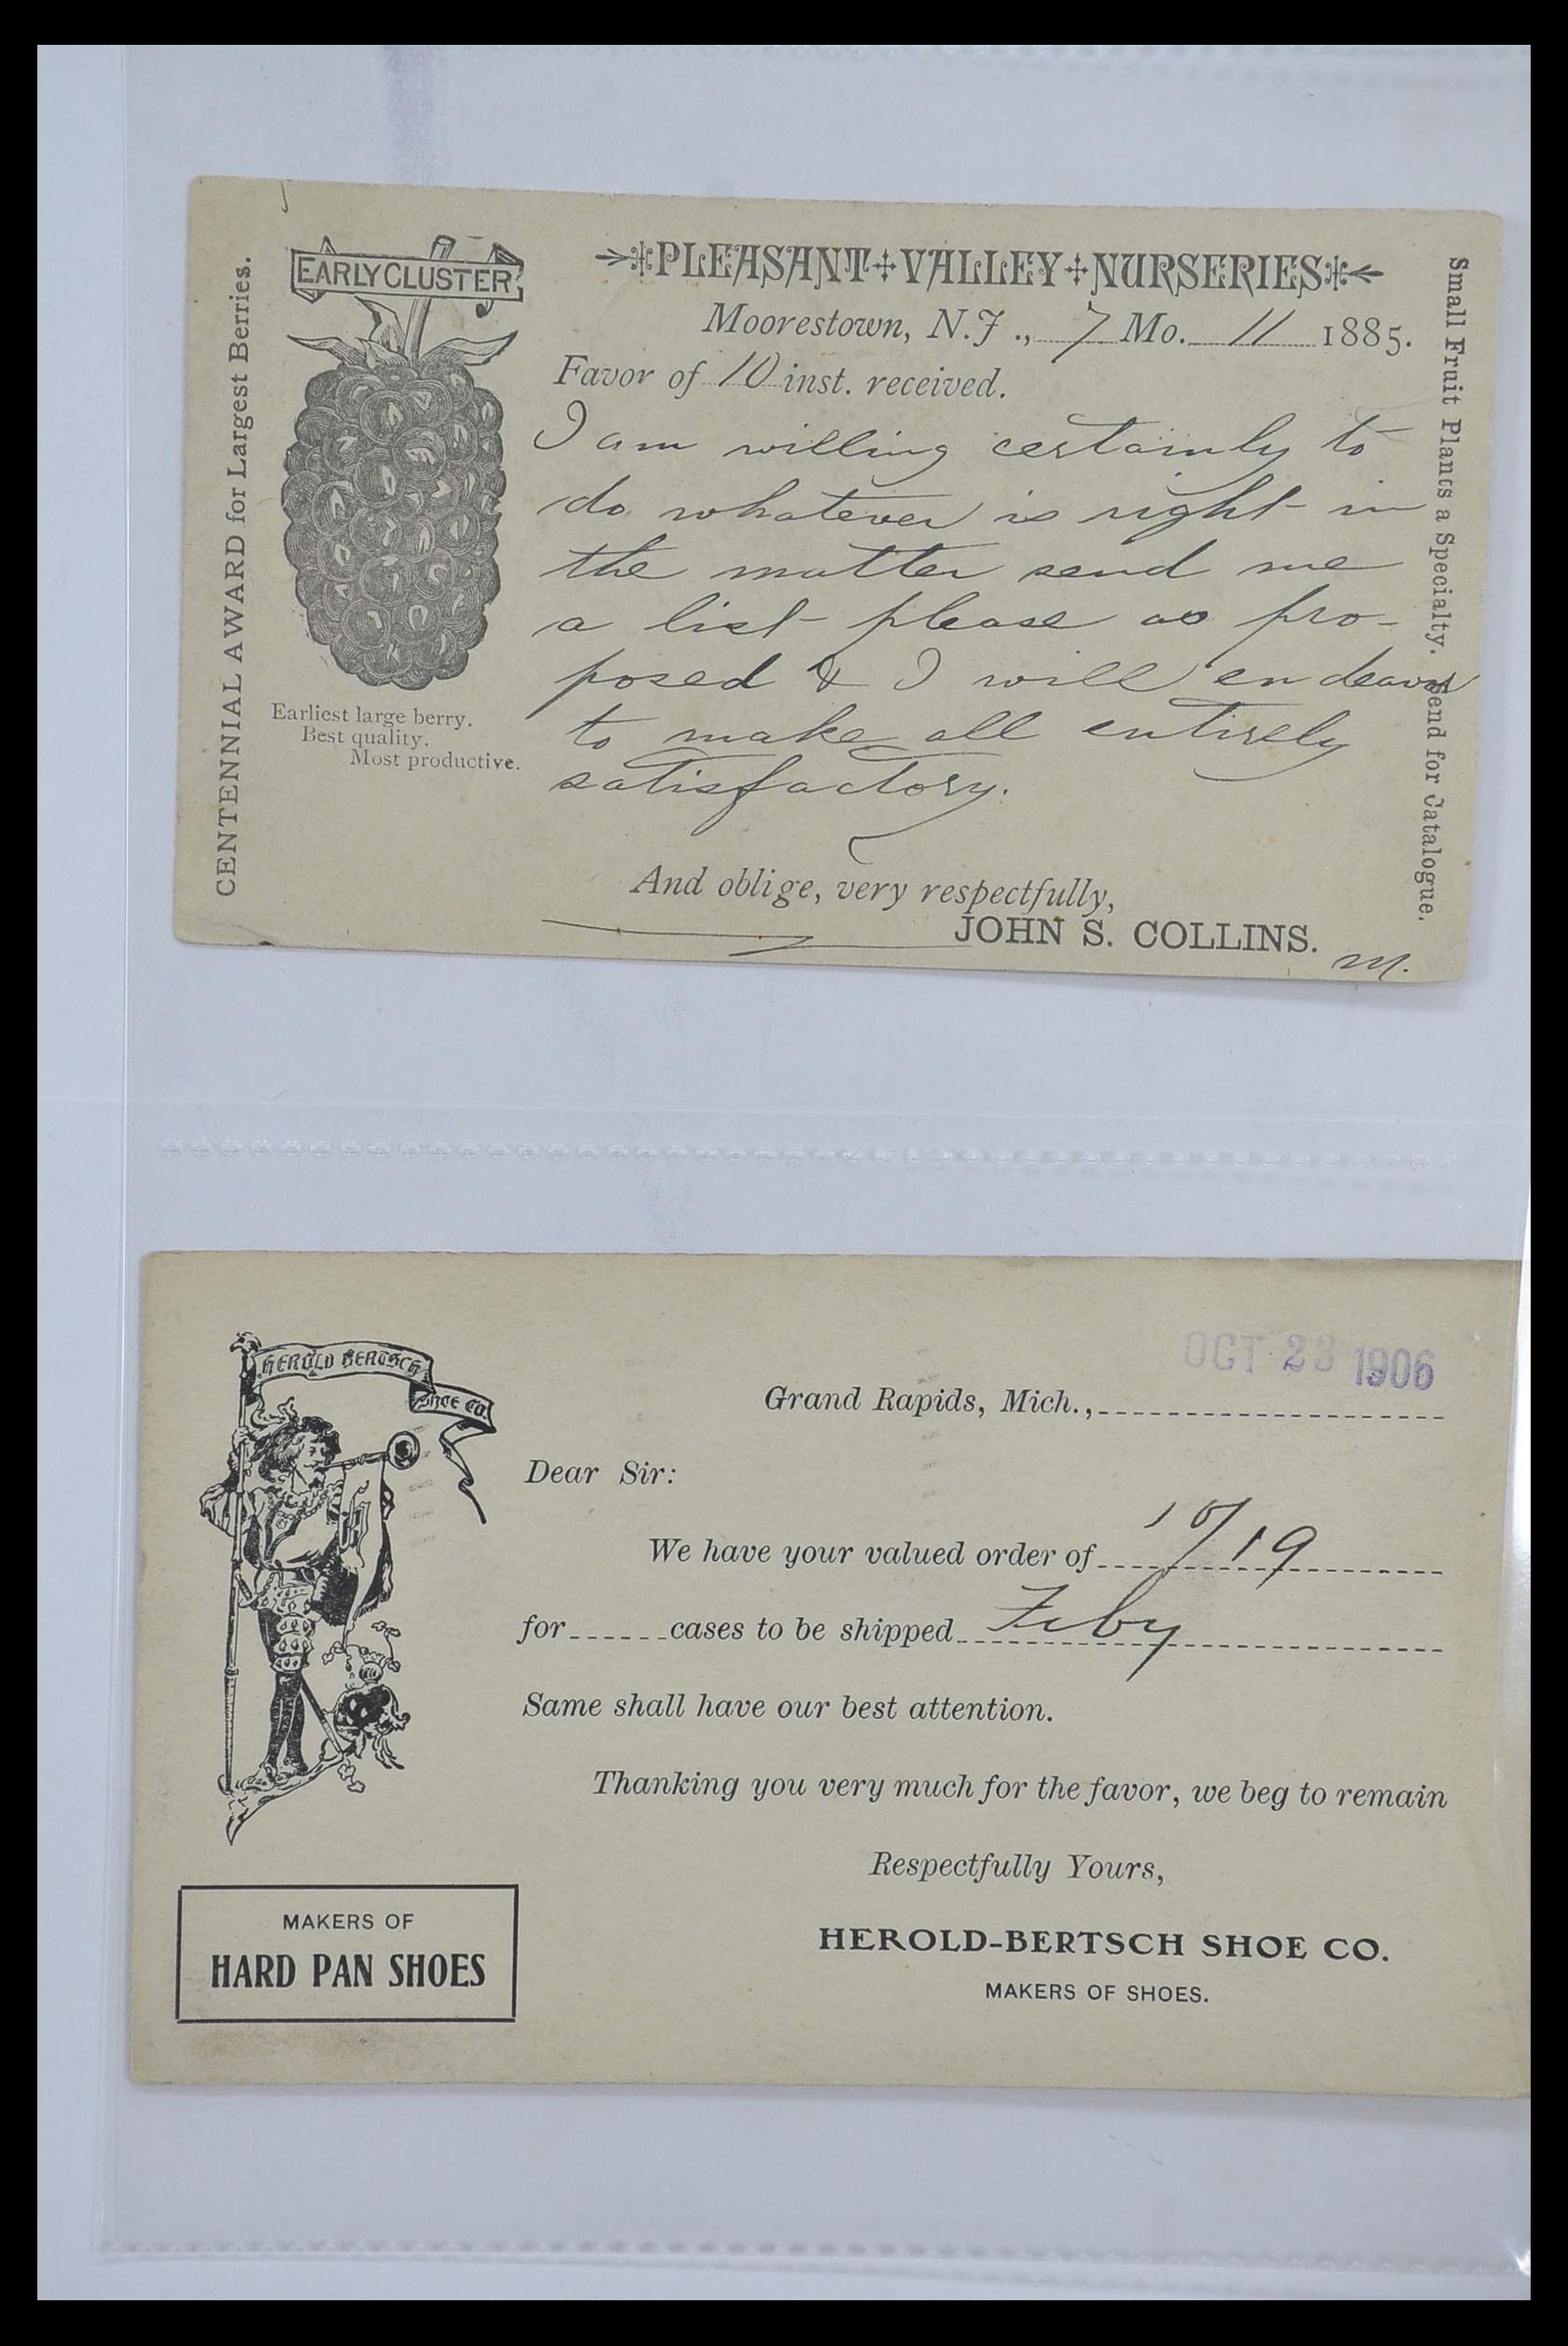 CENTENNIAL AWARD for Largest Berries.
EARLY CLUSTER
Earliest large berry.
Best quality.
Most productive.
PLEASANT VALLEY NURSERIES
Moorestown, N.J., 7 Mo. 11 1885.
Favor of 10 inst. received.
I am willing certainly to
do whatever is right in
the matter send me
a list please as pro-
posed & I will endeavor
to make all entirely
satisfactory.
And oblige, very respectfully,
JOHN S. COLLINS.
M.
Small Fruit Plants a Specialty. Send for Catalogue.
HEROLD BERTSCH
SHOE CO.
MAKERS OF
HARD PAN SHOES
OCT 23 1906
Grand Rapids, Mich.,
Dear Sir:
We have your valued order of 10/19
for cases to be shipped Feby
Same shall have our best attention.
Thanking you very much for the favor, we beg to remain
Respectfully Yours,
HEROLD-BERTSCH SHOE CO.
MAKERS OF SHOES.